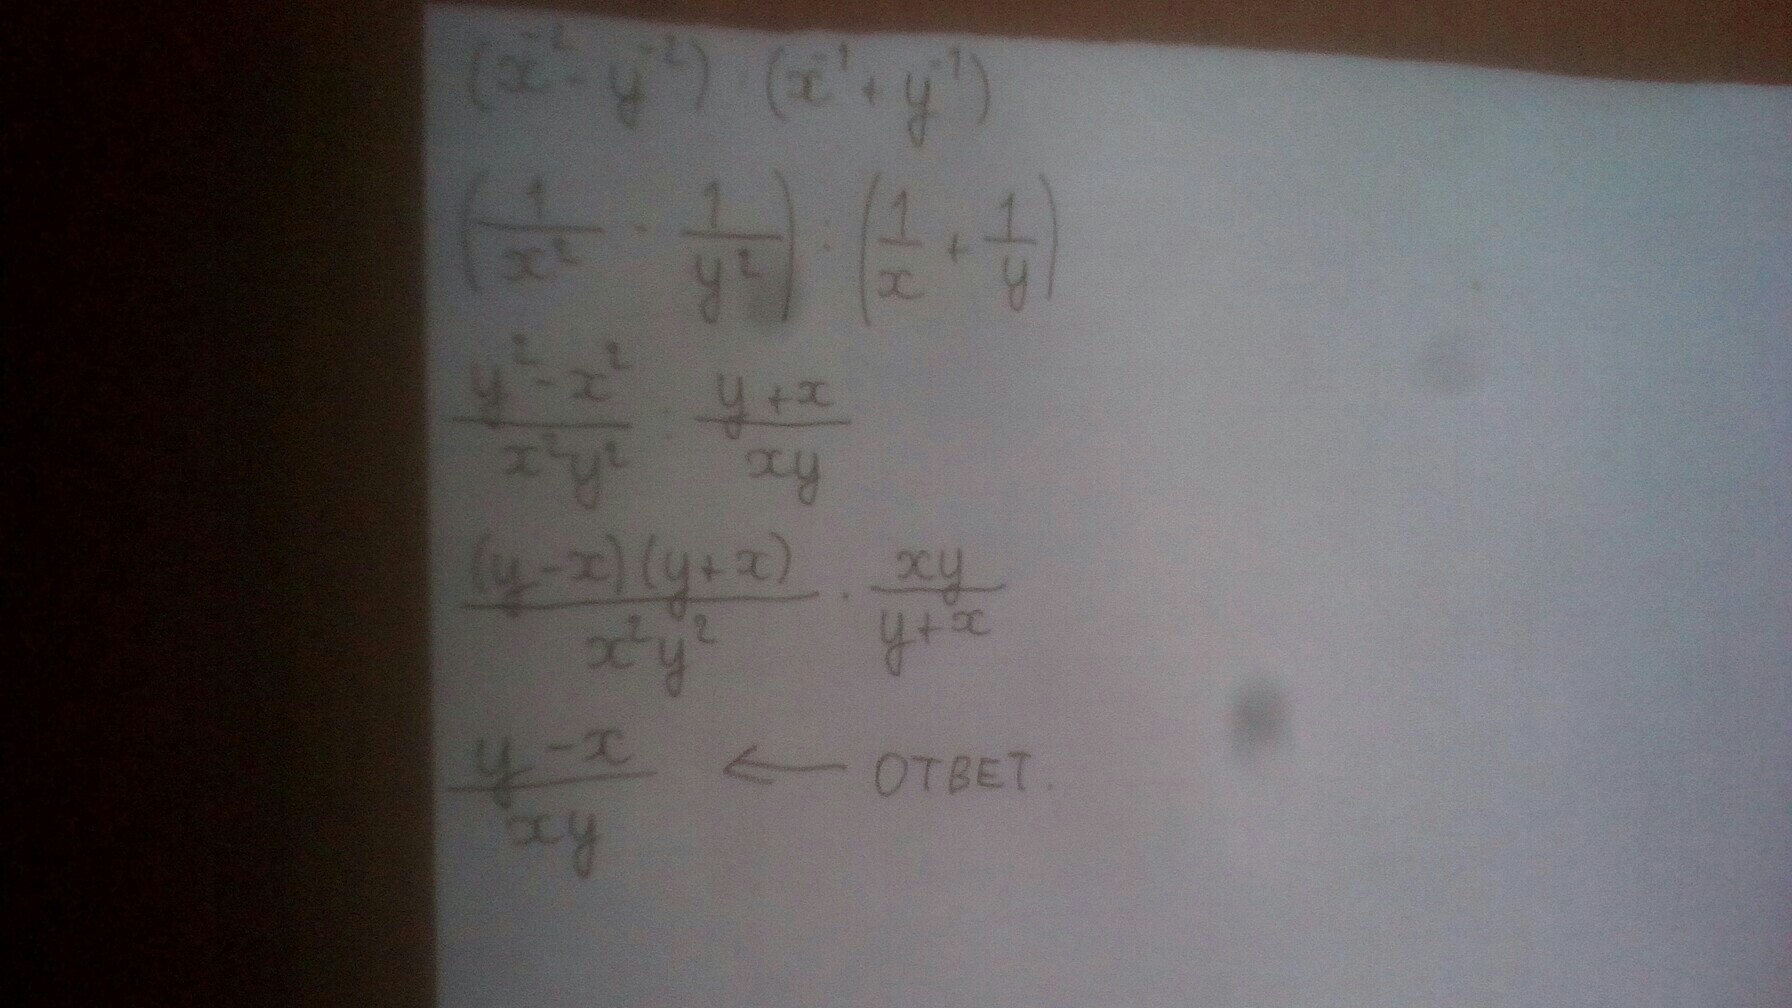 (x⁻² - y⁻²) : (x⁻¹ + y⁻¹)
(1/x² - 1/y²) : (1/x + 1/y)
(y² - x²)/(x²y²) : (y + x)/(xy)
((y - x)(y + x))/(x²y²) · (xy)/(y + x)
(y - x)/(xy) ← ОТВЕТ.